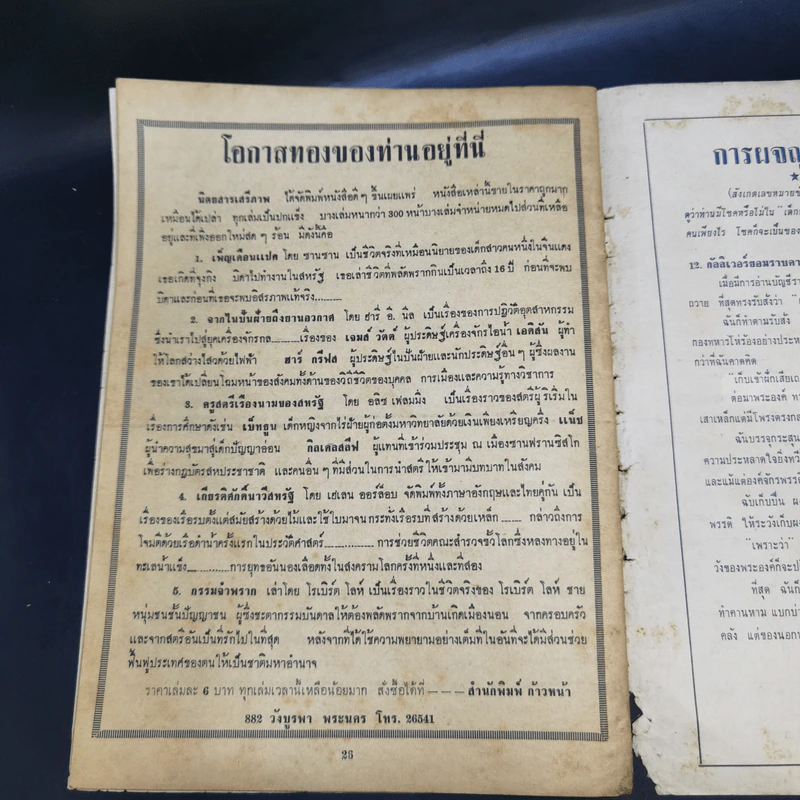 โอกาสทองของท่านอยู่ที่นี่
นิตยสารเสรีภาพ ได้จัดพิมพ์หนังสือดี ๆ ขึ้นเผยแพร่ หนังสือเหล่านี้ขายในราคาถูกมาก
เหมือนได้เปล่า ทุกเล่มเป็นปกแข็ง บางเล่มหนากว่า 300 หน้าบางเล่มจำหน่ายหมดไปส่วนที่เหลือ
อยู่และที่เพิ่งออกใหม่สด ๆ ร้อน มีดังนี้คือ
1. เพ็ญเดือนแปด โดย ซานซาน เป็นชีวิตจริงที่เหมือนนิยายของเด็กสาวคนหนึ่งในจีนแดง
เธอเกิดที่จุงกิง บิดาไปทำงานในสหรัฐ เธอเล่าชีวิตที่พลัดพรากกันเป็นเวลาถึง 16 ปี ก่อนที่จะพบ
บิดาและก่อนที่เธอจะพบอิสรภาพแท้จริง..........
2. จากไนปั่นฝ้ายถึงยานอวกาศ โดย ฮารี่ อี. นีล เป็นเรื่องของการปฏิวัติอุตสาหกรรม
ซึ่งนำเราไปสู่ยุคเครื่องจักรกล..........เรื่องของ เจมส์ วัตต์ ผู้ประดิษฐ์เครื่องจักรไอน้ำ เอดิสัน ผู้ทำ
ให้โลกสว่างไสวด้วยไฟฟ้า ฮาร์ กรีฟส ผู้ประดิษฐ์ไนปั่นฝ้ายและนักประดิษฐ์อื่น ๆ ผู้ซึ่งผลงาน
ของเขาได้เปลี่ยนโฉมหน้าของสังคมทั้งด้านของวิถีชีวิตของบุคคล การเมืองและความรู้ทางวิชาการ
3. ครูสตรีเรืองนามของสหรัฐ โดย อลิซ เฟลมมิ่ง เป็นเรื่องราวของสตรีผู้ริเริ่มใน
เรื่องการศึกษาดังเช่น เบ็ทธูน เด็กหญิงจากไร่ฝ้ายผู้ก่อตั้งมหาวิทยาลัยด้วยเงินเพียงเหรียญครึ่ง แน็ช
ผู้นำความสุขมาสู่เด็กปัญญาอ่อน กิลเดลสลีฟ ผู้แทนที่เข้าร่วมประชุม ณ เมืองซานฟรานซิสโก
เพื่อร่างกฎบัตรสหประชาชาติ และคนอื่น ๆ ที่มีส่วนในการนำสตรีให้เข้ามามีบทบาทในสังคม
4. เกียรติศักดิ์นาวีสหรัฐ โดย เฮเลน ออร์ล็อบ จัดพิมพ์ทั้งภาษาอังกฤษและไทยคู่กัน เป็น
เรื่องของเรือรบตั้งแต่สมัยสร้างด้วยไม้และใช้ใบมาจนกระทั่งเรือรบที่สร้างด้วยเหล็ก.......... กล่าวถึงการ
โจมตีด้วยเรือดำน้ำครั้งแรกในประวัติศาสตร์..........การช่วยชีวิตคณะสำรวจขั้วโลกซึ่งหลงทางอยู่ใน
ทะเลน้ำแข็ง..........การยุทธอันนองเลือดทั้งในสงครามโลกครั้งที่หนึ่งและที่สอง
5. กรรมจำพราก เล่าโดย โรเบิร์ต โลห์ เป็นเรื่องราวในชีวิตจริงของ โรเบิร์ต โลห์ ชาย
หนุ่มชนชั้นปัญญาชน ผู้ซึ่งชะตากรรมบันดาลให้ต้องพลัดพรากจากบ้านเกิดเมืองนอน จากครอบครัว
และจากสตรีอันเป็นที่รักไปในที่สุด หลังจากที่ได้ใช้ความพยายามอย่างเต็มที่ในอันที่จะได้มีส่วนช่วย
ฟื้นฟูประเทศของตนให้เป็นชาติมหาอำนาจ
ราคาเล่มละ 6 บาท ทุกเล่มเวลานี้เหลือน้อยมาก สั่งซื้อได้ที่ — — — สำนักพิมพ์ ก้าวหน้า
882 วังบูรพา พระนคร โทร. 26541
26
การผจญ
(สังเกตเลขหมาย
ดูว่าท่านมีโชคหรือไม่ใน "เด็ก
คนเพียงไร โชคก็จะเป็นของ
12. กัลลิเวอร์ยอมราบคาบ
เมื่อมีการอ่านบัญชีรา
ถวาย ที่สุดทรงรับสั่งว่า
ฉันก็ทำตามรับสั่ง
กองทหารให้ร้องอย่างประห
กว่าที่ฉันคาดคิด
"เก็บเข้าฝักเสียเถ
ต่อมาพระองค์ ทร
เสาเหล็กแต่มีโพรงตรงกล
ฉันบรรจุกระสุน
ความประหลาดใจยิ่งทวี
และแม้แต่องค์จักรพรร
ฉันเก็บปืน
พรรดิ ให้ระวังเก็บผง
"เพราะว่า"
วังของพระองค์ก็จะป
ที่สุด ฉันก็
ทำคานหาม แบกบ่า
คลัง แต่ของนอก